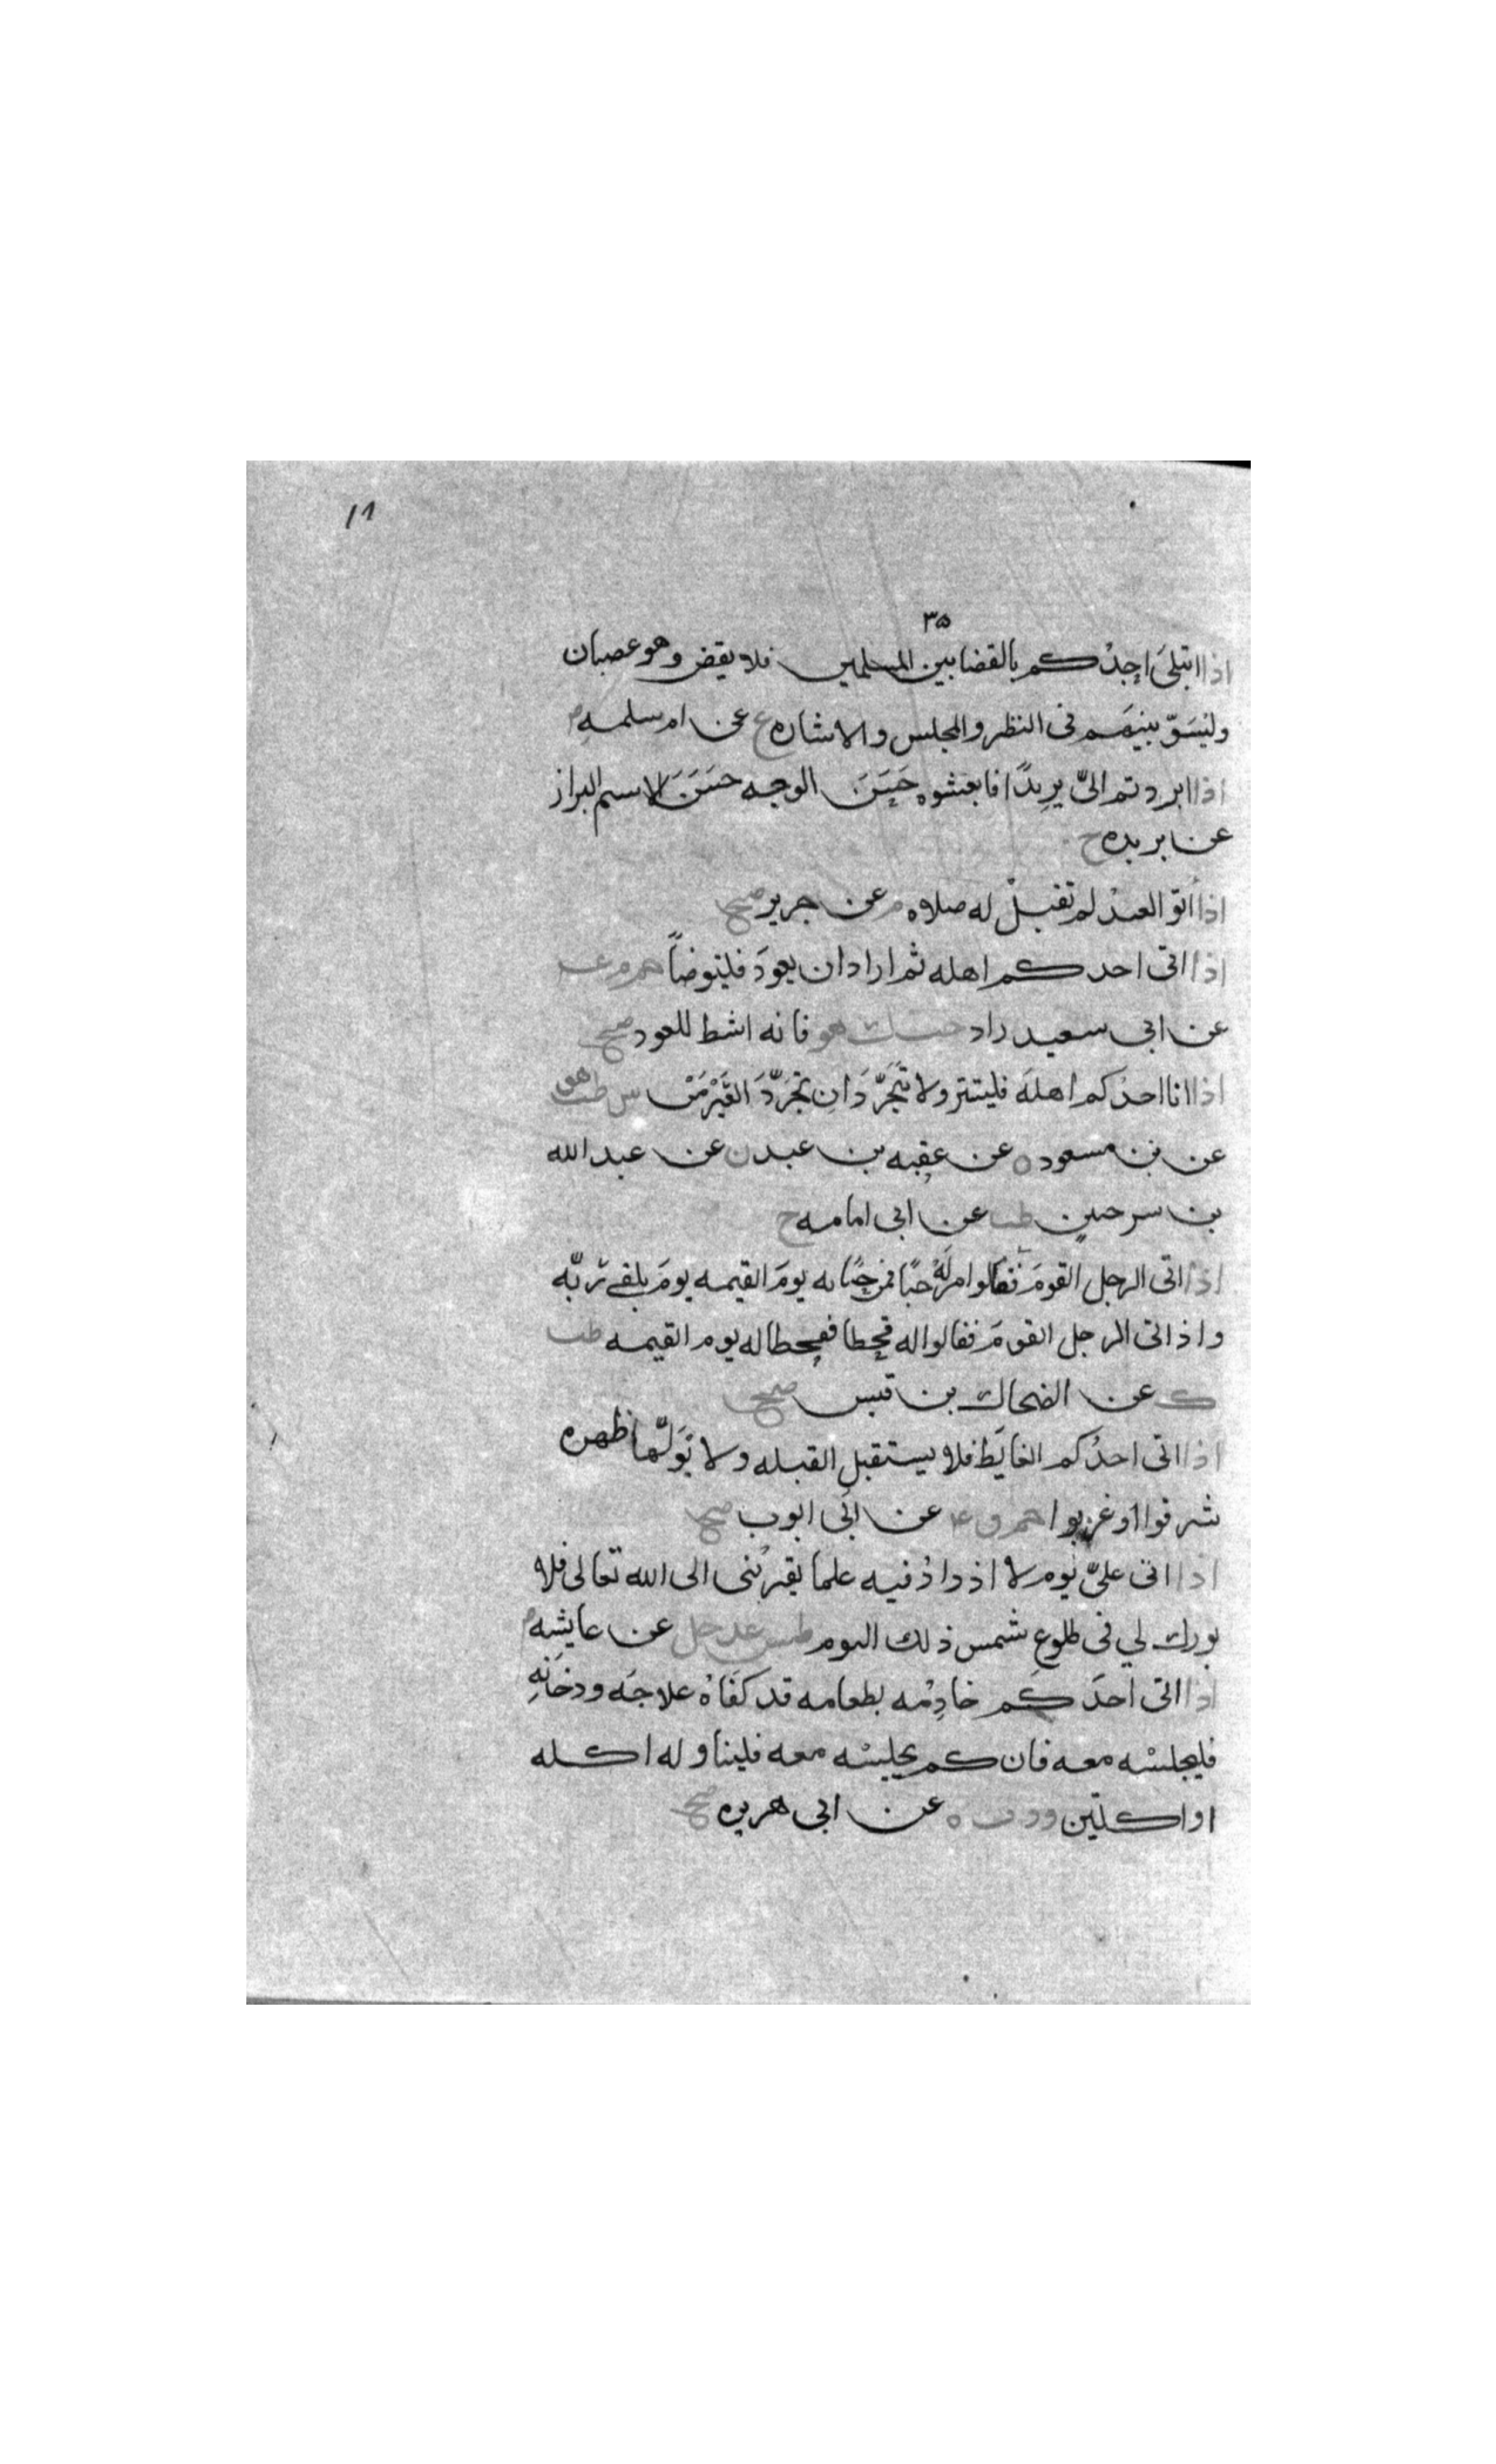 ١١
٣٥
اذا ابتلىَ احدُكم بالقضا بين المسلمين فلا يقض وهو غصبان
وليَسَوّ بينهم فى النظر والمجلس والاشاره ع عن ام سلمه
اذا ابردتم الىّ بريدًا فابعثوه حَسَنَ الوجه حسَنَ الاسم البراز
عن بريده ح
اذا ابق العبدُ لم تقبلْ له صلاه م عن جرير صح
اذا اتى احدكم اهله ثم اراد ان يعودَ فليتوضأ حم م عه
عن ابى سعيد زاد حب ك هق فانه انشط للعود صح
اذا اتا احدكم اهلَه فليستتر ولا تَجَرَّدَانِ تجَرّدَ العَيْرَيْنِ س طب هق
عن بن مسعود ه عن عقبه بن عبد ن عن عبد الله
بن سرجس طب عن ابى امامه ح
اذا اتى الرجل القومَ فقالوا مرحبًا فمرحبًا به يومَ القيمه يومَ يلقى ربّه
واذا اتى الرجل القومَ فقالوا له قحطا فقحطا له يوم القيمه طب
ك عن الضحاك بن قيس صح
اذا اتى احدُكم الغايَط فلا يستقبلِ القبله ولا يُوَلّها ظهره
شرقوا او غربوا حم ق ع عن ابى ايوب صح
اذا اتى علىّ يوم لا ازداد فيه علما يقربُنى الى الله تعالى فلا
بورك لي فى طلوع شمس ذلك اليوم طس عد حل عن عايشه
اذا اتى احدَكم خادِمُه بطعامه قد كفَاهُ علاجَه ودخَانَه
فليجلسْه معه فان لم يجليسْه معه فليناوله اكله
او اكلتين ق د ت ه عن ابى هريره صح